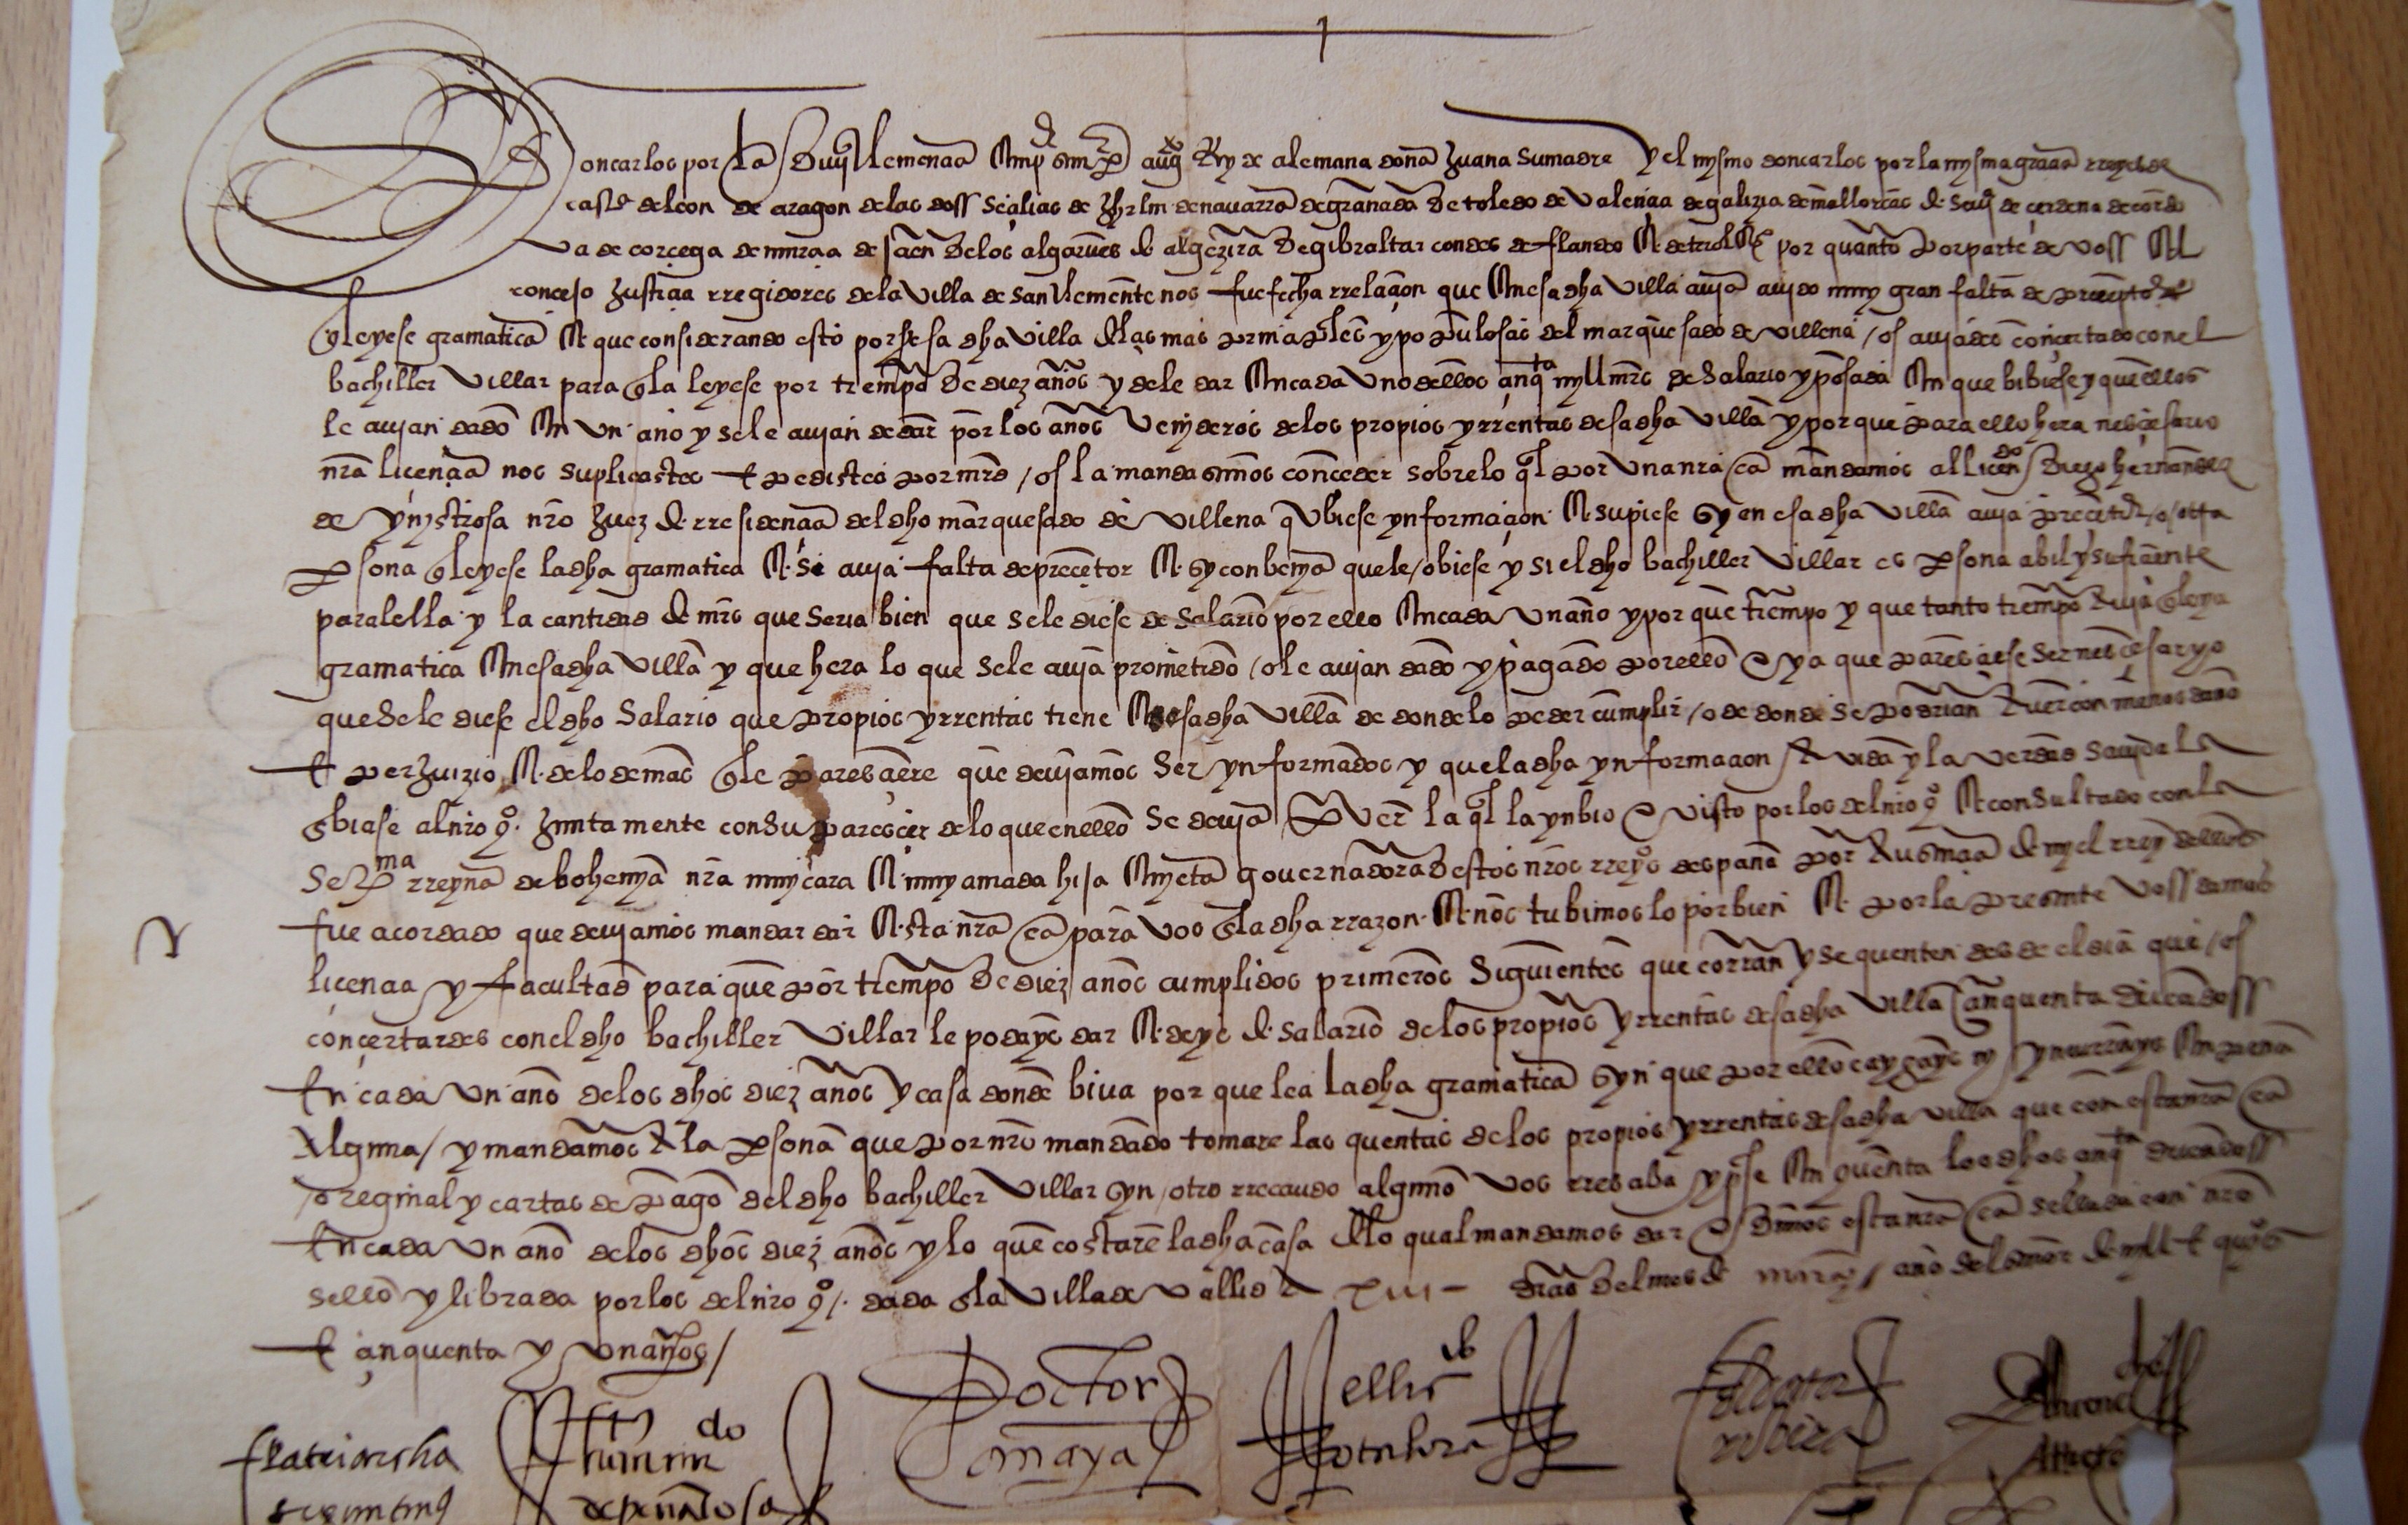 Don carlos por la diuy clemençia emp semp aug Rey de alemana dona Juana su madre y el mysmo don carlos por la mysma graçia rreyes de
casta de leon de aragon de las doss seçilias de Jhrlm de navarra de granada de toledo de valençia de galizia de mallorcas de seui de çerdena de cordo
va de corçega de murçia de Jaen de los algarues de algezira de gibraltar condes de flandes e de tirol etc por quanto por parte de voss el
conçejo Justiçia rregidores de la villa de san clemente nos fue fecha rrelaçion que en esa dha villa auia auido muy gran falta de preçeptor
q leyese gramatica e que considerando esto por ser esa dha villa de las mas prinçipales y populosas del marquesado de villena / os auiades conçertado con el
bachiller villar para q la leyese por tiempo de diez años y de le dar en cada uno dellos çinqta myll mrs de salario y posada en que bibiese y que dellos
le auian dado en un año y se le auian de dar por los años venideros de los propios y rrentas desa dha villa y porque para ello hera nesçesario
nra liçençia nos suplicastes e pedistes por mrd / os la mandasemos conçeder sobre lo ql por una nra ca mandamos al liçendo diego hernandez
de ynystrosa nro Juez de rresidençia del dho marquesado de villena q ubiese ynformaçion e supiese sy en esa dha villa auia preçetor / o otra
psona q leyese la dha gramatica e si auia falta de preçetor e sy conbenya que le / obiese y si el dho bachiller villar es psona abil y sufiçiente
para lella y la cantidad de mrs que seria bien que se le diese de salario por ello en cada un año y por que tiempo y que tanto tiempo auia q leya
gramatica en esa dha villa y que hera lo que se le auia prometido / o le auian dado y pagado por ello e ya que paresçiese ser nesçesaryo
que se le diese el dho salario que propios y rrentas tiene esa dha villa de donde lo poder cumplir / o de donde se podrian auer con menos daño
e perJuizio e de lo demas q le paresçiere que deuiamos ser ynformados y que la dha ynformaçion auida y la verdad sauida la
enbiase al nro qº Juntamente con su paresçer de lo que en ello se deuia prouer la ql la ynbio e visto por los del nro qº e consultado con la
serma rreyna de bohemya nra muy cara e muy amada hija e nyeta gouernadora destos nros rreynos despaña por ausençia de my el rrey dellos
fue acordado que deuiamos mandar dar esta nra ca para vos q la dha rrazon e nos tubimoslo por bien e por la presente voss damos
liçençia y facultad para que por tiempo de diez años cumplidos primeros siguientes que corran y se quenten desde el dia que / os
conçertardes con el dho bachiller villar le podays dar e deys de salario de los propios y rrentas desa dha villa çinquenta ducadoss
en cada un año de los dhos diez años y casa donde biua por que lea la dha gramatica syn que por ello caygays ny yncurrays en pena
alguna / y mandamos a la psona que por nro mandado tomare las quentas de los propios y rrentas desa dha villa que con esta nra ca
/ oreginal y cartas de pago del dho bachiller villar syn / otro rrecaudo alguno vos rresçiba y pase en quenta los dhos çinqta ducadoss
en cada un año de los dhos diez años y lo que costare la dha casa de lo qual mandamos dar e dimos esta nra ca sellada con nro
sello y librada por los del nro qº /. dada en la villa de vallid a xiii dias del mes de março / año del señor de mill e quios
e çinquenta y un años /
patriarcha
seguntino
do
de peñalosa
Doctor
anaya
El lic
otalora
ribera